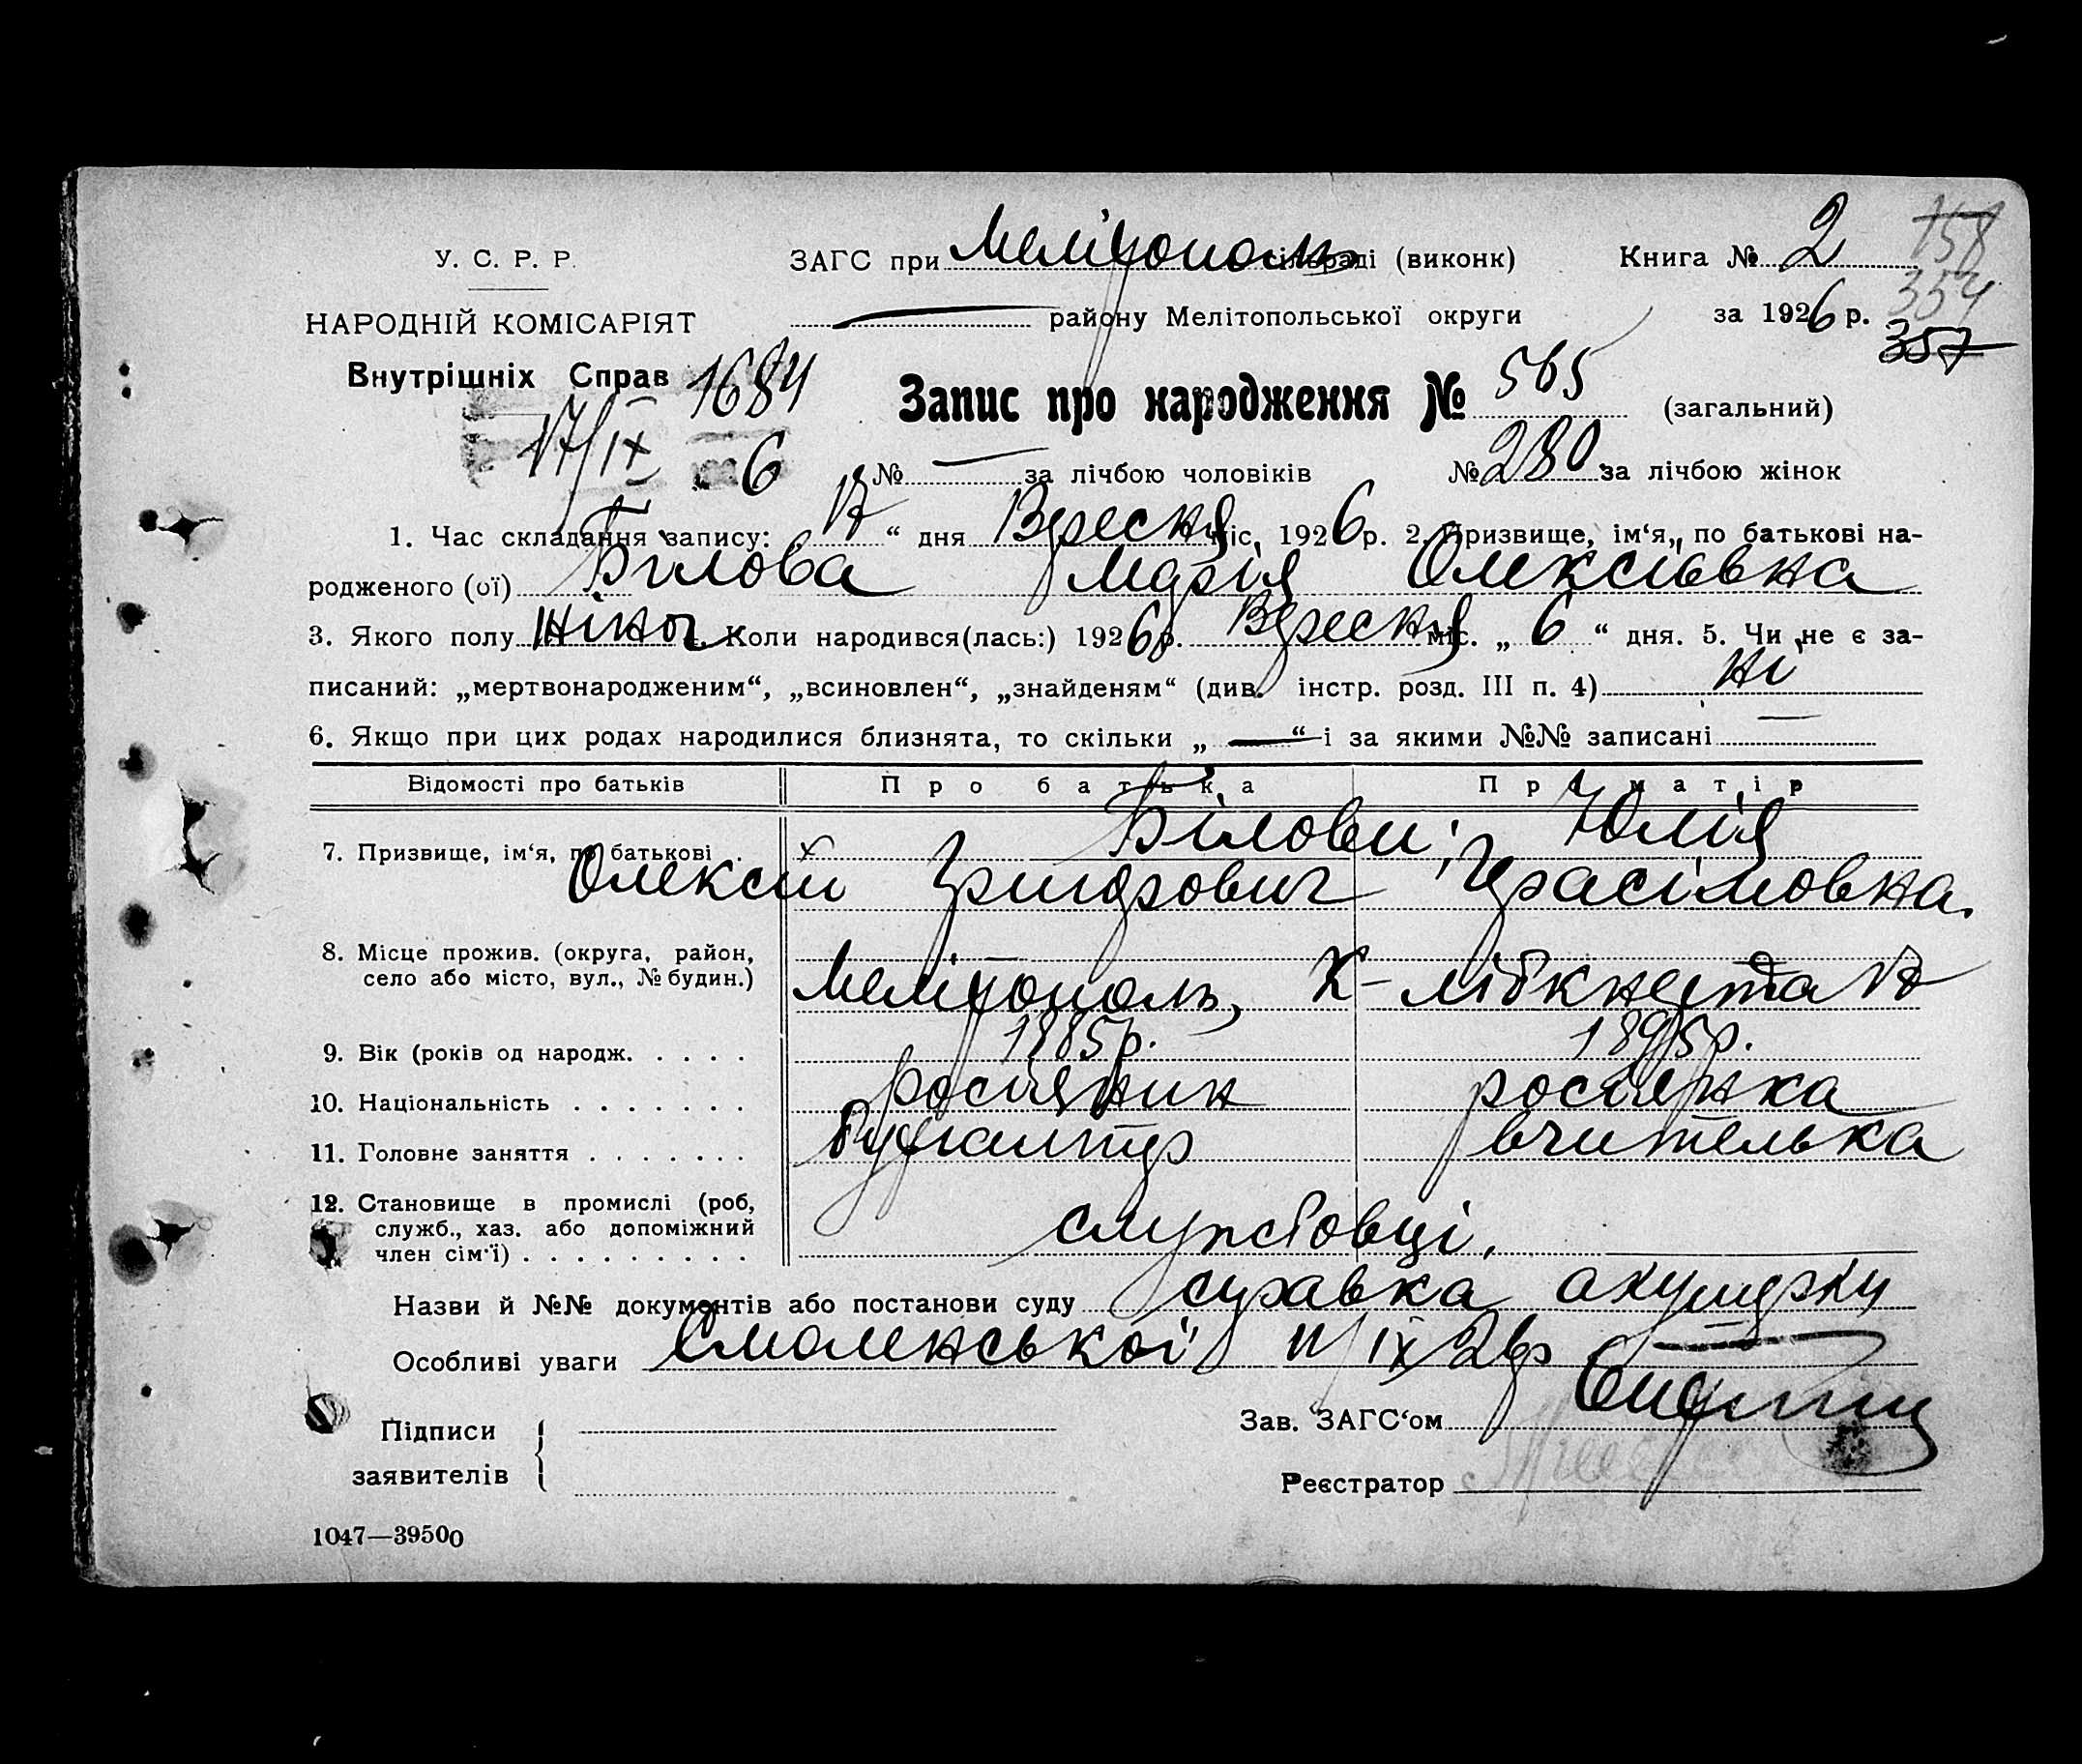 У. С. Р. Р.
ЗАГС при Мелітополь сільраді (виконк)
Книга № 2
158
НАРОДНІЙ КОМІСАРІЯТ
району Мелітопольської округи
за 1926 р.
354
357
Внутрішніх Справ 1684
Запис про народження № 565 (загальний)
17/IX 6
№ — за лічбою чоловіків № 280 за лічбою жінок
1. Час складання запису: 17 “ дня Вересня міс. 1926 р. 2. Призвище, ім‘я, по батькові на-
родженого (ої) Білова Марія Олексіівна
3. Якого полу жіноч 4. Коли народився(лась:) 1926 р. Вересня міс. „ 6 “ дня. 5. Чи не є за-
писаний: „мертвонародженим“, „всиновлен“, „знайденям“ (див. інстр. розд. III п. 4) ні
6. Якщо при цих родах народилися близнята, то скільки „ — “ і за якими №№ записані —
Відомості про батьків Про батька Про матір
7. Призвище, ім‘я, по батькові . Білови; Юлія
Олексій Григорович Герасімовна.
8. Місце прожив. (округа, район,
село або місто, вул., № будин.) Мелітополь, К-Лібкнехта 17
9. Вік (років од народж. . . . . 1885р. 1895р.
10. Національність . . . . . . . росіянин росіянка
11. Головне заняття . . . . . . . бухгалтер вчителька
12. Становище в промислі (роб,
служб., хаз. або допоміжний
член сім‘ї) . . . . . . . . . службовці.
Назви й №№ документів або постанови суду справка акушерки
Особливі уваги Смоленської 11/IX 26р
Підписи
заявителів
Зав. ЗАГС‘ом
Реєстратор
1047—39500